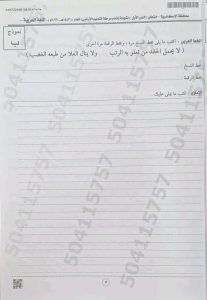 محافظة الإسكندرية - امتحان (الدور الأول) - لشهادة إتمام مرحلة التعليم الأساسي
اللغة العربية
نموذج
الخط العربي - اكتب ما يلي بخط النسخ مرة، وبخط الرقعة مرة أخرى
( لا يحمل الحقد من تعلو به الرتب ولا ينال العلا من طبعه الغضب )
خط النسخ
خط الرقعة
الإملاء - اكتب ما يملى عليك
504115757
504115757
504115757
504115757